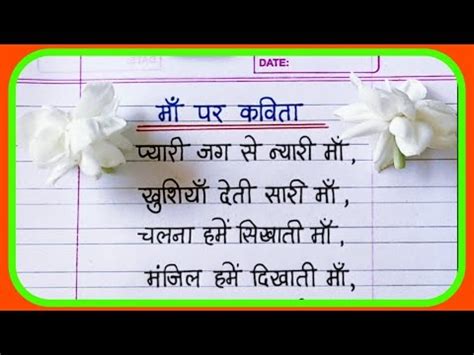 DATE:
माँ पर कविता
प्यारी जग से न्यारी माँ,
खुशियाँ देती सारी माँ,
चलना हमें सिखाती माँ,
मंजिल हमें दिखाती माँ,